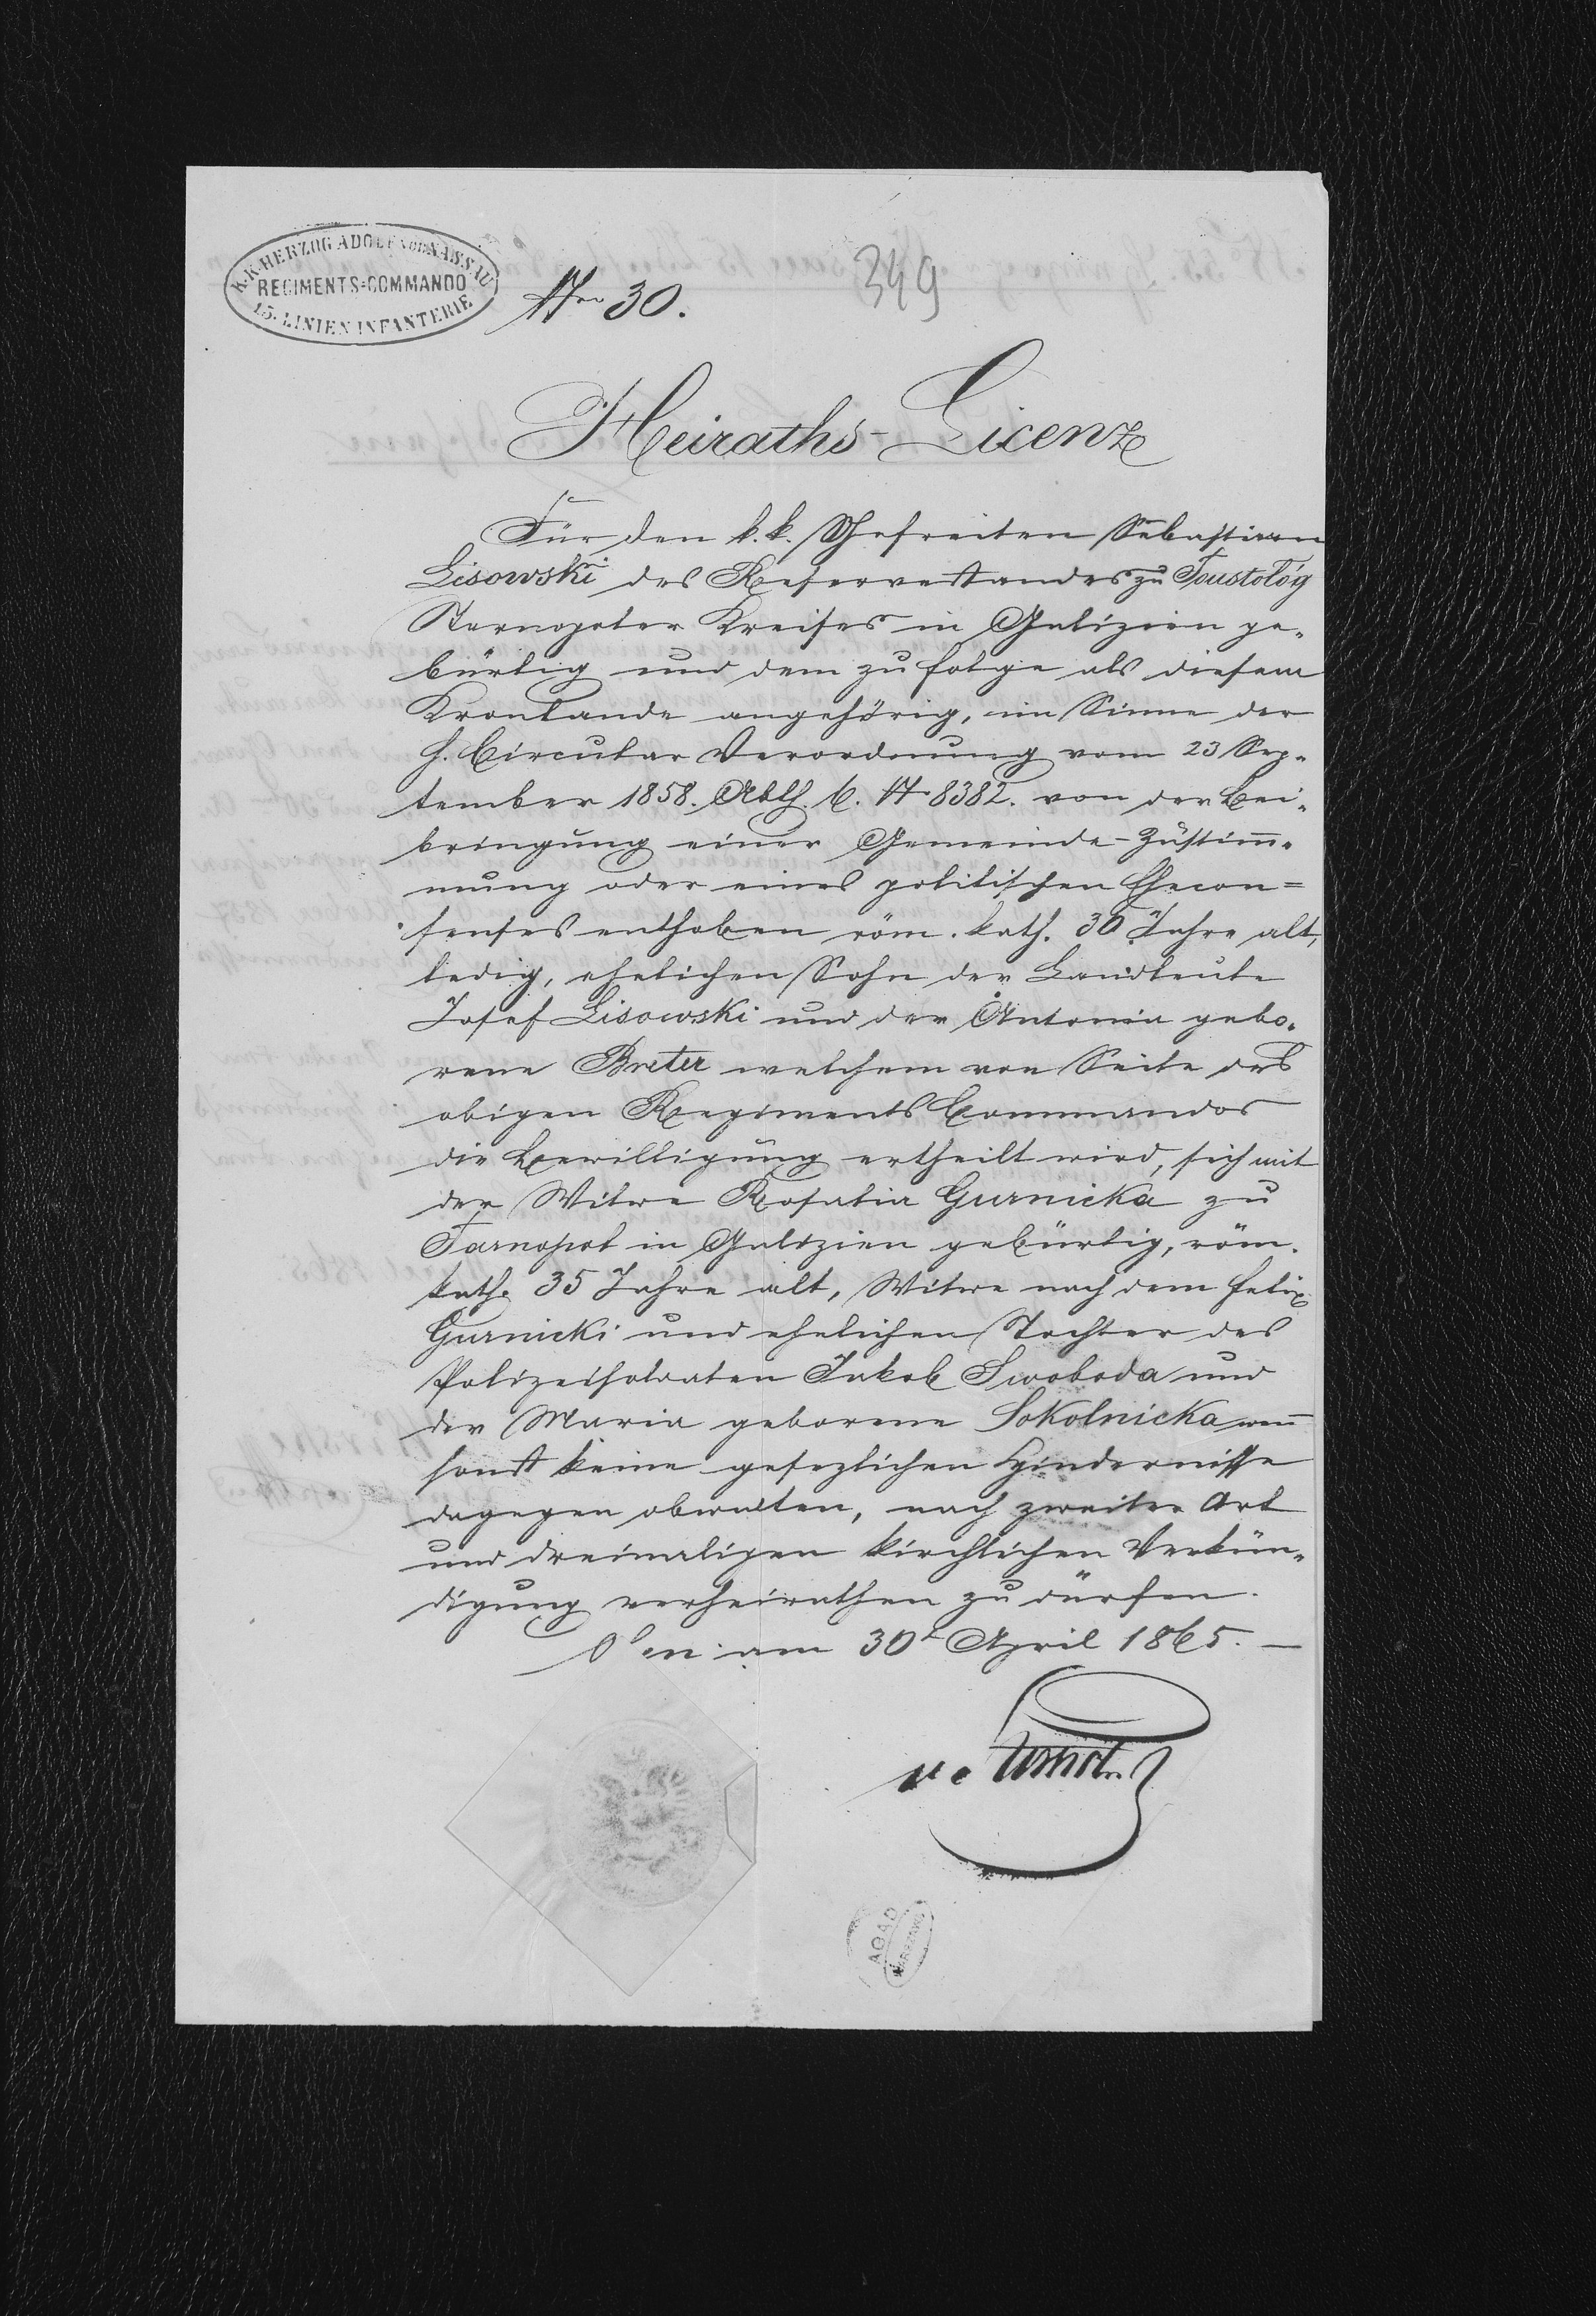 K. K. HERZOG ADOLF VON NASSAU
REGIMENTS-COMMANDO
15. LINIEN INFANTERIE
Nro 30.
349
Heiraths-Licenz
Für den k. k. Gefreiten Sebastian
Lisowski des Reservestandes zu Toustológ
Tarnopoler Kreises in Galizien ge-
bürtig und dem zu folge als diesem
Kronlande angehörig, im Sinne der
h. Circular Verordnung vom 23 Sep-
tember 1858. Abth. 6. N 8382. von der Bei-
bringung einer Gemeinde-Zustim̅-
mung oder eines politischen Ehecon=
senses enthoben röm. kath. 30 Jahre alt,
ledig, ehelichen Sohn der Landleute
Josef Lisowski und der Antonia gebo-
rene Breter welchem von Seite des
obigen Regiments Commandos
die Bewilligung ertheilt wird, sich mit
der Witwe Rosalia Gurnicka zu
Tarnopol in Galizien gebürtig, röm.
kath. 35 Jahre alt, Witwe nach dem Felix
Gurnicki und ehelichen Tochter des
Polizeisoldaten Jakob Swoboda und
der Maria geborene Sokolnicka wen̅
sonst keine gesezlichen Hindernisse
dagegen obwalten, nach zweiter Art
und dreimaligen kirchlichen Verkün-
digung verheirathen zu dürfen.
am 30t April 1865. —
AGAD
WARSZAWA